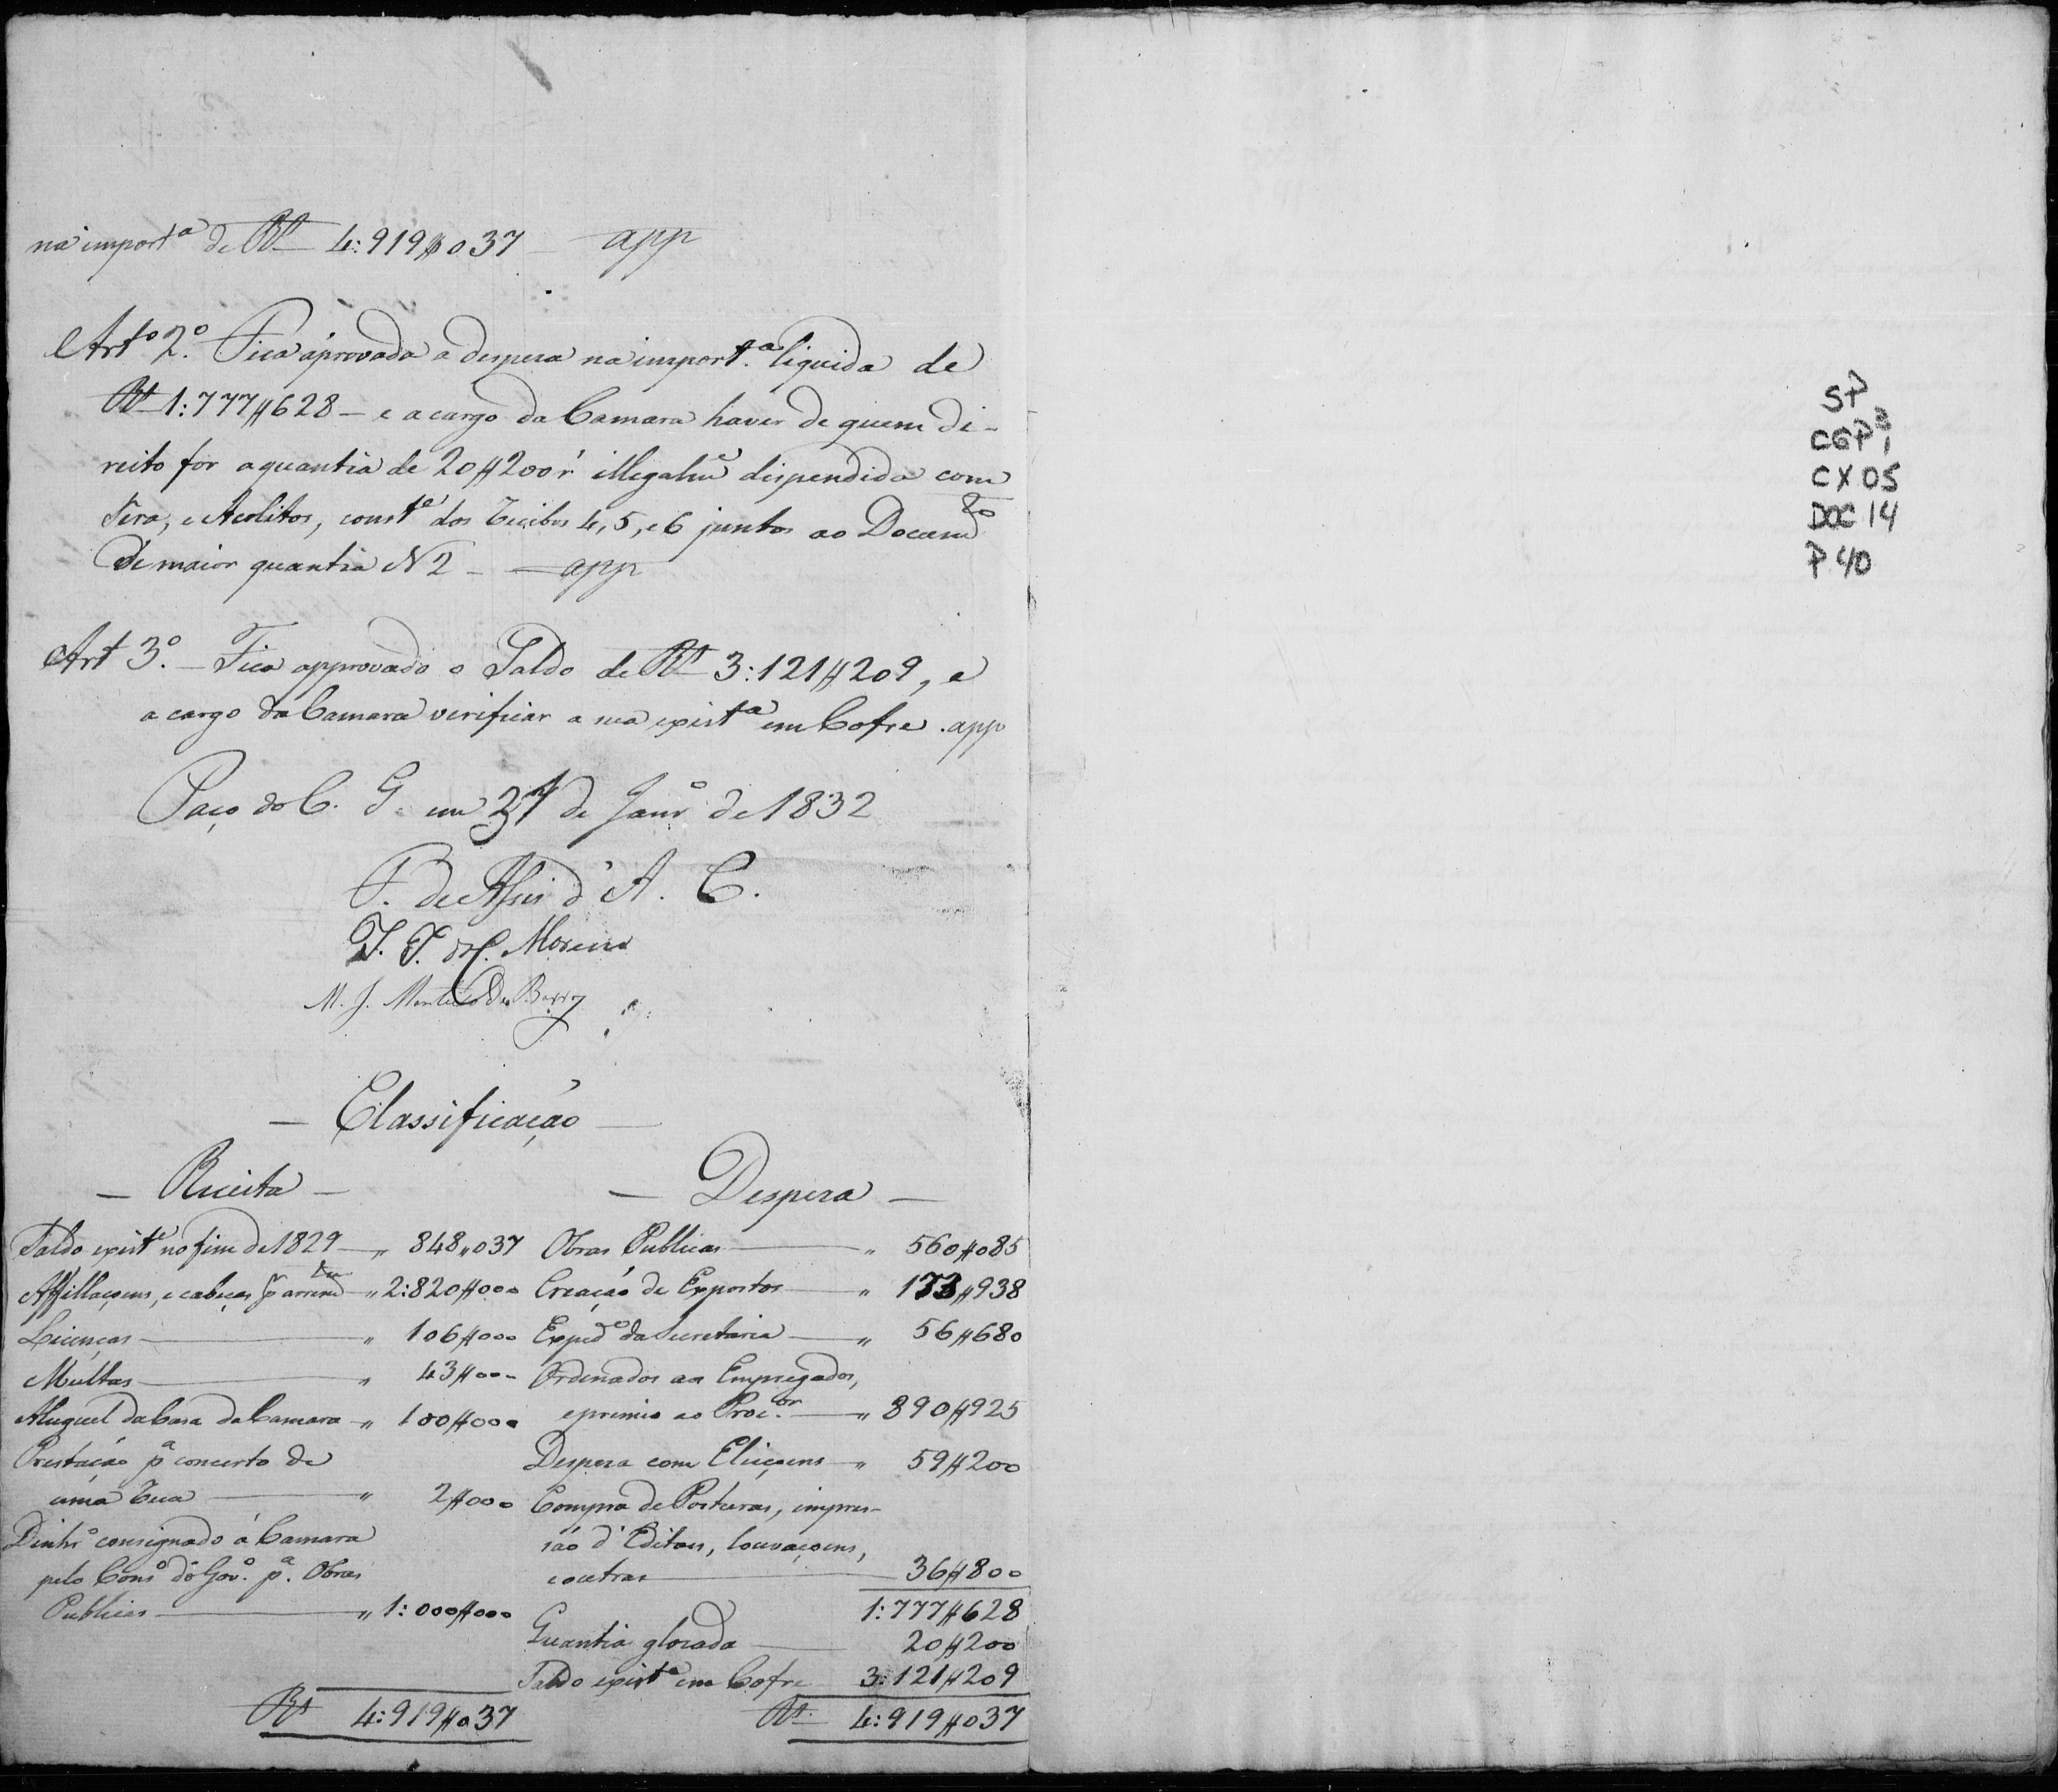 na import.ª de Rs 4:919$037 — app
Artº 2º. Fica aprovada a despeza na import.ª liquida de
Rs 1:777$628 — e a cargo da Camara haver de quem di-
reito for a quantia de 20$200 r illegalmᵉ dispendida com
Sera, e Acolitos, constᵉ dos Recibos 4, 5, e 6 juntos ao Documᵗᵒ
de maior quantia N 2 — app
Art 3º. — Fica approvado o Saldo de Rs 3:121$209, e
a cargo da Camara verificar a sua existª em Cofre. app
Paço do C. G. em 27 de Janrº de 1832
F. de Assis d'A. C.
M. J. Monteiro de Barros
— Classificação —
— Receita —
Saldo existᵉ no fim de 1829 — " 848"037
Affillaçoens, e cabeças p arrendᵗᵒ — " 2:820$000
Licenças — " 106$000
Multas — " 43$000
Aluguel da Casa da Camara — " 100$000
Prestação pª concerto de
uma Rua — " 2$000
Dinhrº consignado á Camara
pelo Consº do Govº. pª. Obras
Publicas — " 1:000$000
Rs 4:919$037
— Despeza —
Obras Publicas — " 560$085
Creação de Expostos — " 173$938
Expedᵉ da Secretaria — " 56$680
Ordenados aos Empregados,
e premio ao Procᵒʳ. — " 890$925
Despeza com Eleiçoens — " 59$200
Compra de Posturas, impres-
são d'Editaes, louvaçoens,
e outras — 36$800
1:777$628
Quantia glozada — 20$200
Saldo existᵉ em Cofre 3:121$209
Rs 4:919$037
SP
CGP³,
CX 05
DOC 14
P 40